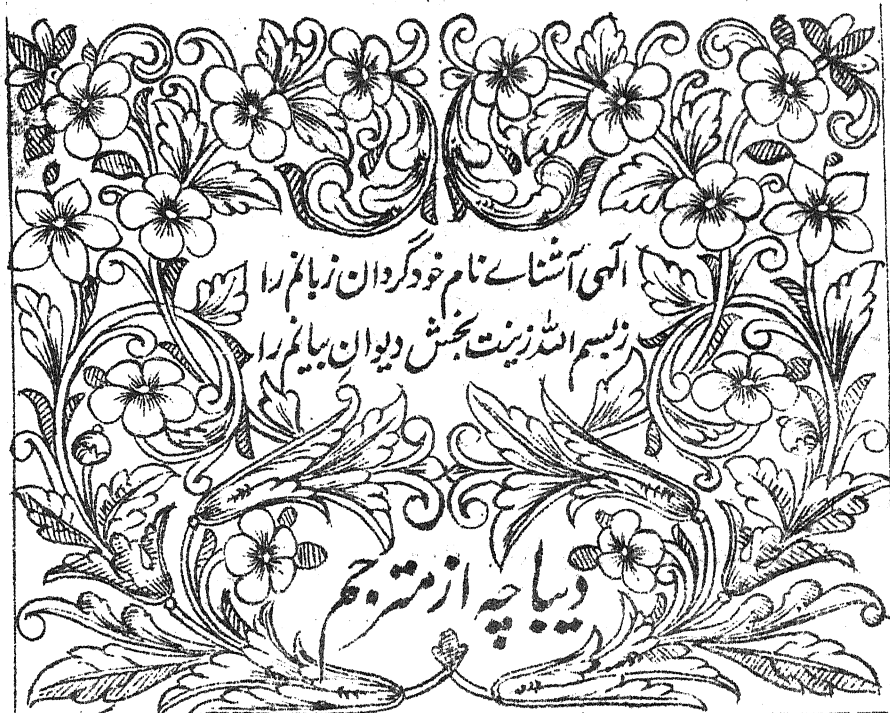 الٰہی آشنائے نام خود گردان زبانم را
زبسم اللہ زینت بخش دیوان بیانم را
دیباچہ از مترجم